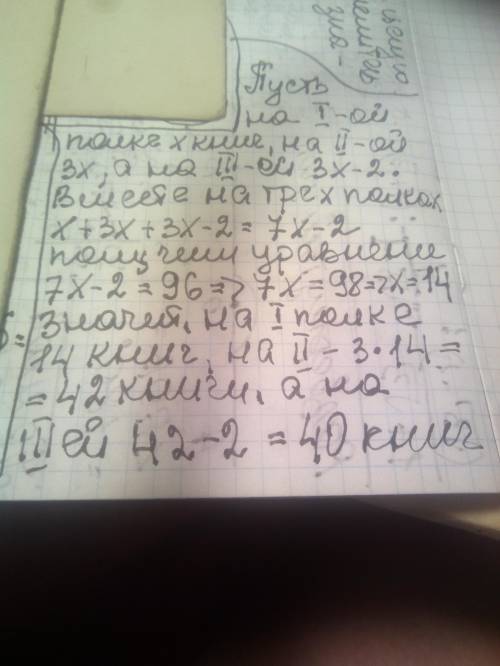 Пусть
на I-ой
полке x книг, на II-ой
3x, а на III-ей 3x-2.
Вместе на трех полках
x+3x+3x-2=7x-2
получим уравнение
7x-2=96=>7x=98=>x=14
значит, на I полке
14 книг, на II - 3·14=
=42 книги, а на
III ей 42-2=40 книг